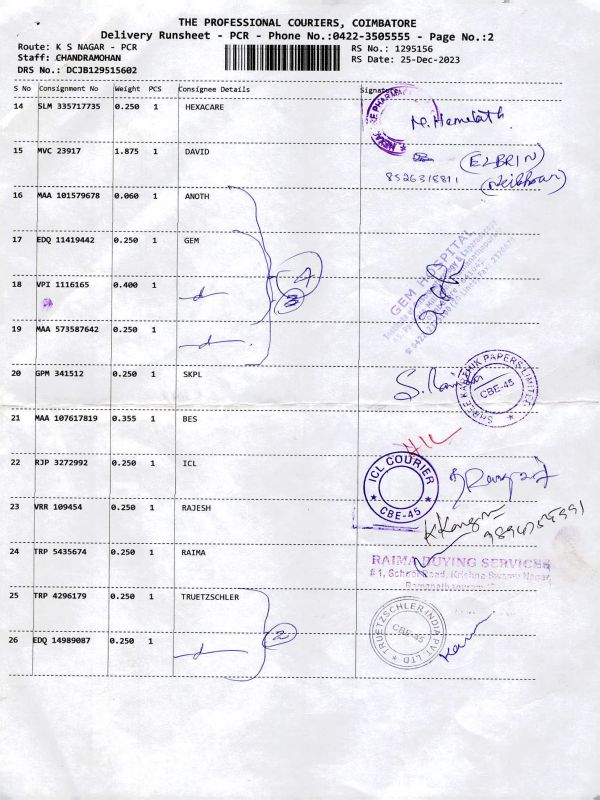 THE PROFESSIONAL COURIERS, COIMBATORE
Delivery Runsheet - PCR - Phone No.:0422-3505555 - Page No.:2
Route: K S NAGAR - PCR
RS No.: 1295156
Staff: CHANDRAMOHAN
RS Date: 25-Dec-2023
DRS No.: DCJB129515602
S No Consignment No Weight PCS Consignee Details Signature
14 SLM 335717735 0.250 1 HEXACARE
15 MVC 23917 1.875 1 DAVID
(EZBRIN)
8526318811 (Neibhour)
16 MAA 101579678 0.060 1 ANOTH
17 EDQ 11419442 0.250 1 GEM
GEM HOSPITAL
18 VPI 1116165 0.400 1
19 MAA 573587642 0.250 1
20 GPM 341512 0.250 1 SKPL
SHREE KARTHIK PAPERS LIMITED
CBE-45
21 MAA 107617819 0.355 1 BES
22 RJP 3272992 0.250 1 ICL
ICL COURIER
CBE-45
23 VRR 109454 0.250 1 RAJESH
24 TRP 5435674 0.250 1 RAIMA
RAIMA BUYING SERVICES
# 1, School Road, Krishna Swamy Nagar,
Ramanathapuram
25 TRP 4296179 0.250 1 TRUETZSCHLER
TRUETZSCHLER INDIA PVT. LTD
CBE-45
2
26 EDQ 14989087 0.250 1